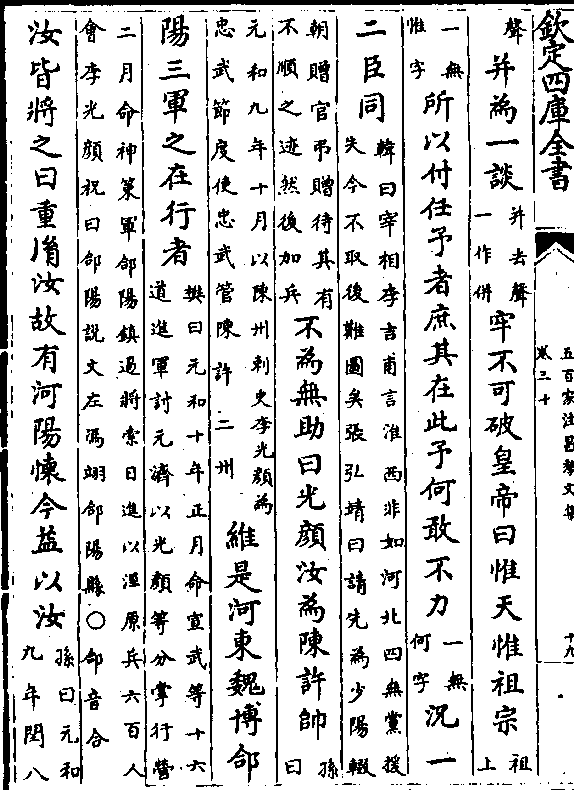 欽定四庫全書
五百家注昌黎文集
卷三十
十九
聲并為一談并去聲一作併牢不可破皇帝曰惟天惟祖宗祖上
一無惟字所以付任予者庶其在此予何敢不力一無何字况一
二臣同韓曰宰相李吉甫言淮西非如河北四無黨援失今不取後難圖矣張弘靖曰請先為少陽輟
朝贈官弔贈待其有不順之迹然後加兵不為無助曰光顔汝為陳許帥孫曰
元和九年十月以陳州刺史李光顔為忠武節度使忠武管陳許二州維是河東魏博郃
陽三軍之在行者樊曰元和十年正月命宣武等十六道進軍討元濟以光顔等分掌行營
二月命神策軍郃陽鎮遏將索日進以涇原兵六百人會李光顔祝曰郃陽說文左馮翊郃陽縣○郃音合
汝皆將之曰重胤汝故有河陽懷今益以汝孫曰元和九年閏八